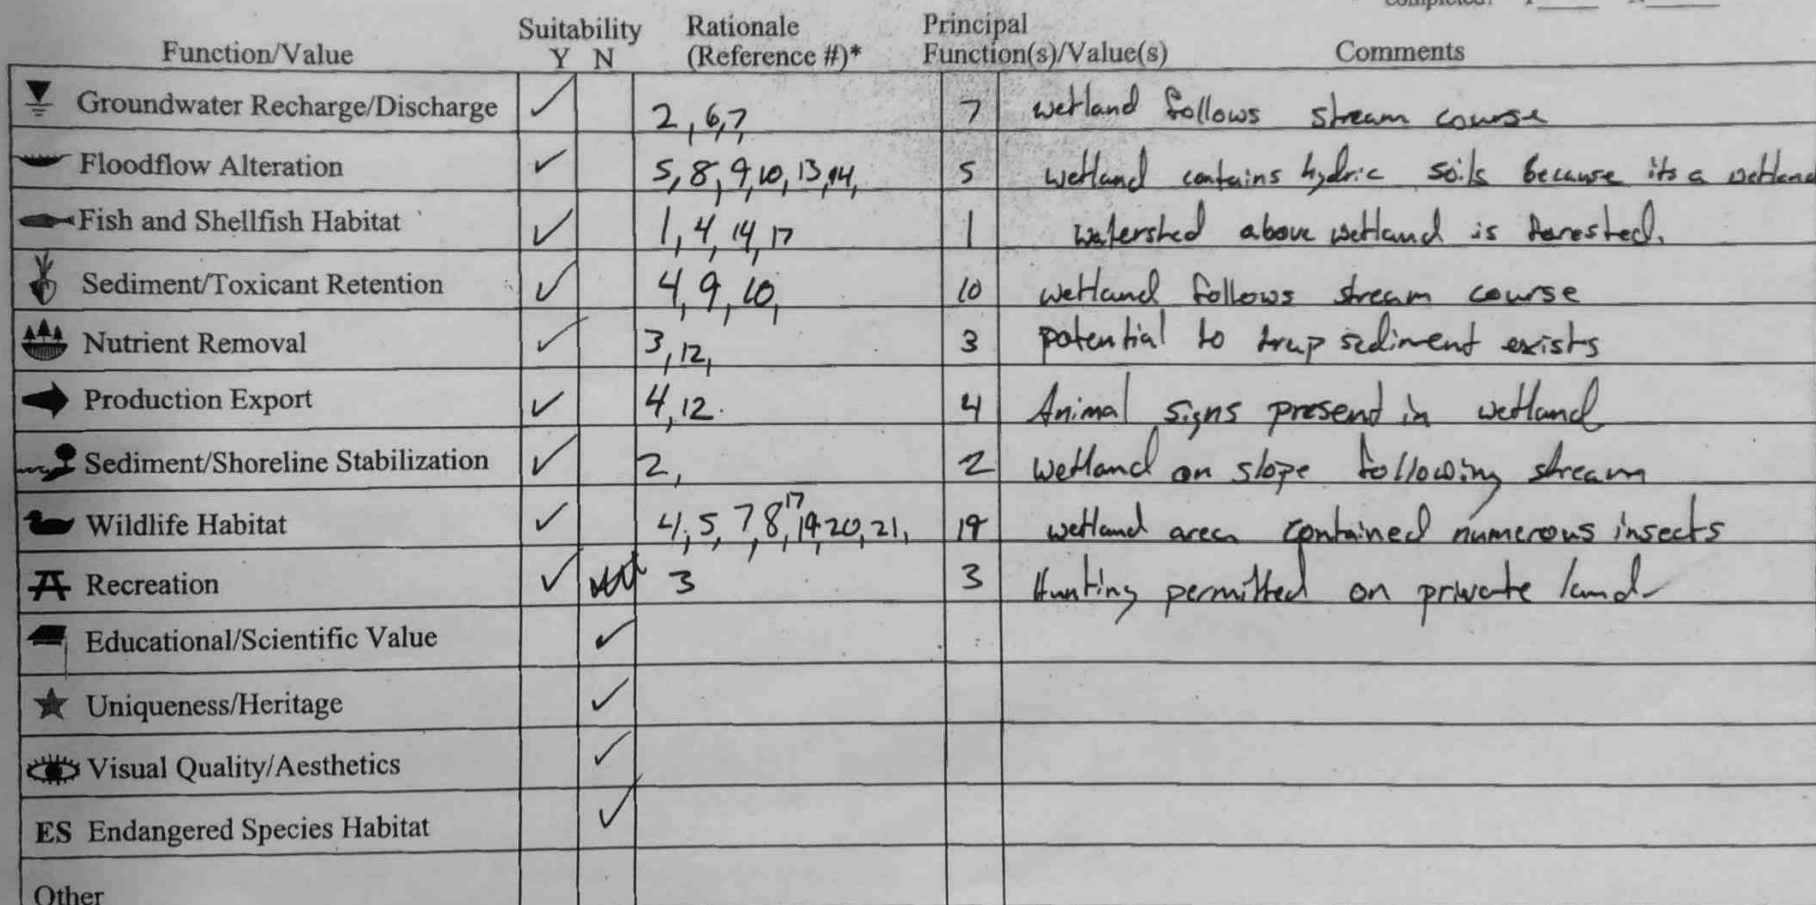 Function/Value Suitability Y N Rationale (Reference #)* Principal Function(s)/Value(s) Comments
Groundwater Recharge/Discharge ✓ 2, 6, 7 7 wetland follows stream course
Floodflow Alteration ✓ 5, 8, 9, 10, 13, 14, 5 wetland contains hydric soils because its a wetland
Fish and Shellfish Habitat ✓ 1, 4, 14, 17 1 watershed above wetland is forested.
Sediment/Toxicant Retention ✓ 4, 9, 10, 10 wetland follows stream course
Nutrient Removal ✓ 3, 12, 3 potential to trap sediment exists
Production Export ✓ 4, 12. 4 Animal signs present in wetland
Sediment/Shoreline Stabilization ✓ 2, 2 wetland on slope following stream
Wildlife Habitat ✓ 4, 5, 7, 8, 17, 19, 20, 21, 19 wetland area contained numerous insects
Recreation ✓ 3 3 Hunting permitted on private land
Educational/Scientific Value ✓
Uniqueness/Heritage ✓
Visual Quality/Aesthetics ✓
ES Endangered Species Habitat ✓
Other